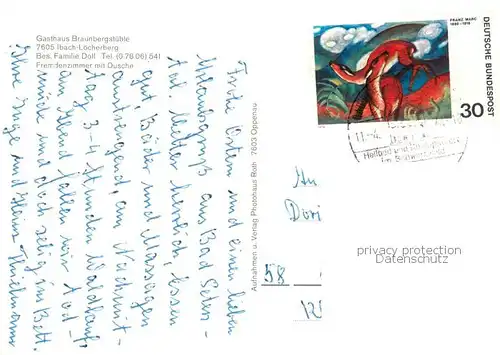 Gasthaus Braunbergstüble
7605 Ibach-Löcherberg
Bes. Familie Doll Tel. (0 78 06) 541
Fremdenzimmer mit Dusche
Frohe Ostern und einen lieben
Urlaubsgruß aus Bad Peters-
tal. Wetter herrlich, Essen
gut, Bäder und Massagen
anstrengend, am Nachmit-
tag 3-4 Stunden Waldlauf
am Abend fallen wir tod-
müde und doch selig in Bett.
Eure
Aufnahmen u. Verlag Photohaus Roth 7603 Oppenau
FRANZ MARC
1880-1916
DEUTSCHE BUNDESPOST
30
11.-4.
Heilbad und
im
An
Dori
58
privacy protection
Datenschutz